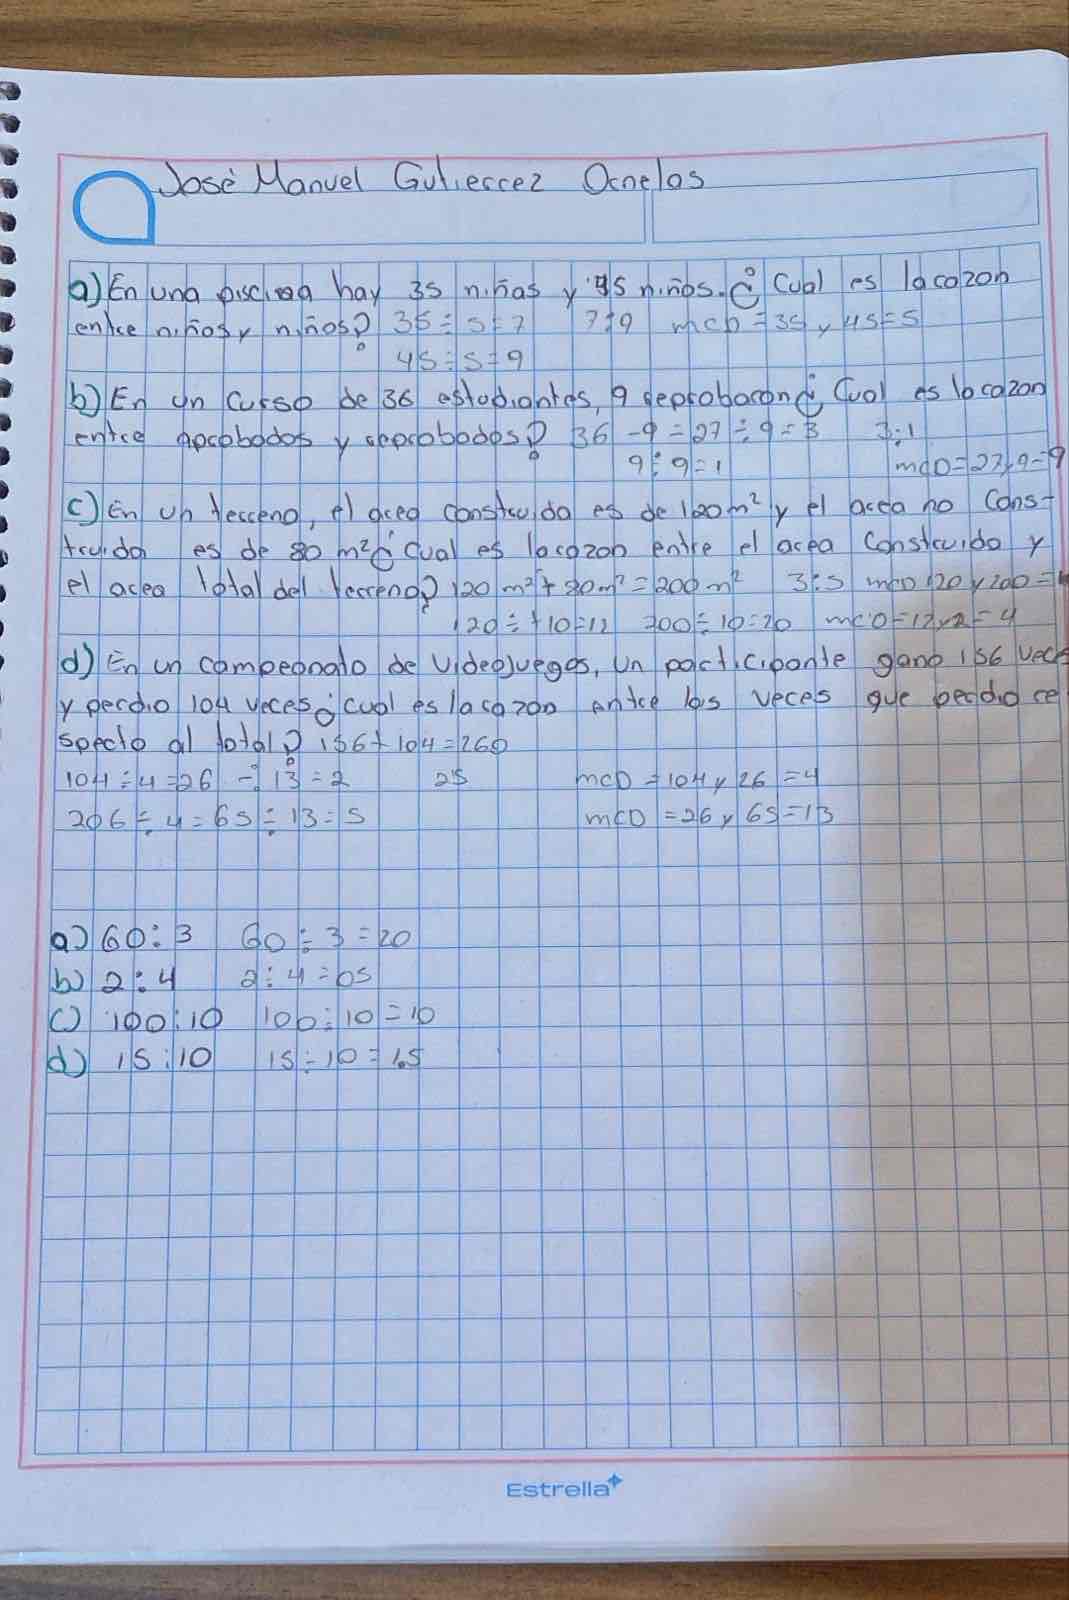 José Manuel Gutierrez Ornelas
a) En una piscina hay 35 niñas y 45 niños. ¿Cual es la razon
entre niños y niños? 35 ÷ 5 = 7 7:9 mcD = 35 y 45 = 5
45 ÷ 5 = 9
b) En un curso de 36 estudiantes, 9 reprobaron ¿Cual es la razon
entre aprobados y reprobados? 36 - 9 = 27 ÷ 9 = 3 3:1
9 ÷ 9 = 1 mcD = 27 y 9 = 9
c) En un terreno, el area construida es de 120 m² y el area no cons-
truida es de 80 m² ¿cual es la razon entre el area construida y
el area total del terreno? 120 m² + 80 m² = 200 m² 3:5 mcD 120 y 200 =
120 ÷ 10 = 12 200 ÷ 10 = 20 mcD = 12 y 2 = 4
d) En un campeonato de videojuegos, un participante gano 156 veces
y perdio 104 veces ¿cual es la razon entre las veces que perdio re
specto al total? 156 + 104 = 260
104 ÷ 4 = 26 ÷ 13 = 2 2:5 mcD = 104 y 26 = 4
206 ÷ 4 = 65 ÷ 13 = 5 mcD = 26 y 65 = 13
a) 60:3 60 ÷ 3 = 20
b) 2:4 2 ÷ 4 = 05
c) 100:10 100 ÷ 10 = 10
d) 15:10 15 ÷ 10 = 1.5
Estrella